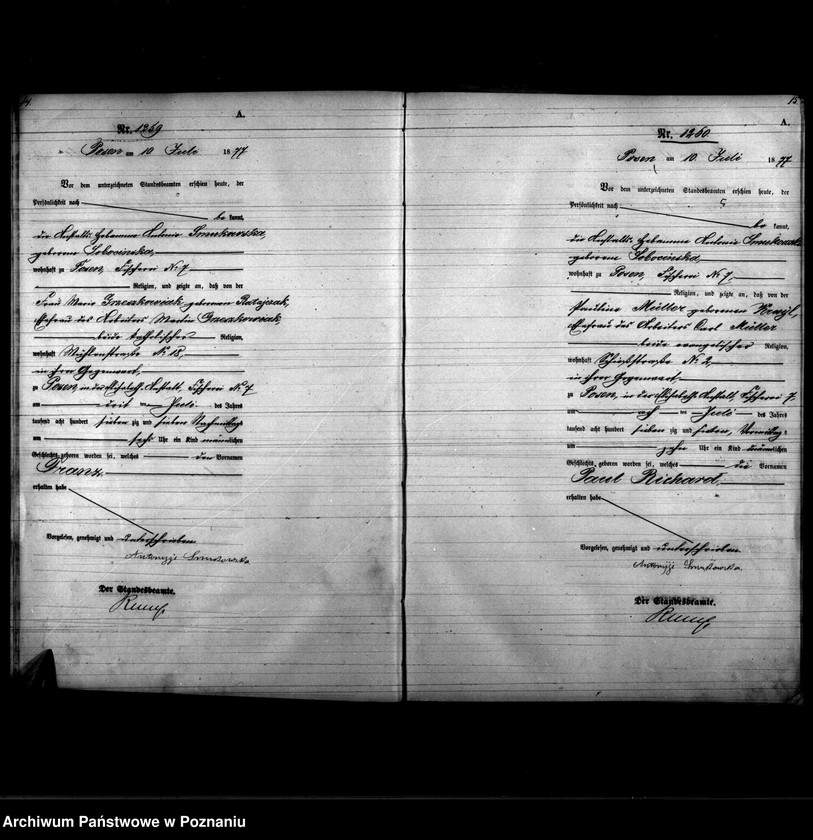 14.
A.
Nr. 1259
Posen am 10 Juli 1877
Vor dem unterzeichneten Standesbeamten erschien heute, der
Persönlichkeit nach
be kannt,
die Anstalts Hebamme Antonie
geborene Sobocinska,
wohnhaft zu Posen, Fischerei N. 7
Religion, und zeigte an, daß von der
Frau Marie Grzeszkowiak geborenen Ratajczak,
Ehefrau des Arbeiters Martin Grzeszkowiak,
beide katholischer Religion,
wohnhaft Mühlenstraße N. 18,
in ihrer Gegenwart,
zu Posen, in der Elisabeth Anstalt, Fischerei N. 7
am Juli des Jahres
tausend acht hundert sieben zig und sieben Nachmittags
um Uhr ein Kind männlichen
Geschlechts geboren worden sei, welches den Vornamen
Franz
erhalten habe
Vorgelesen, genehmigt und unterschrieben
Der Standesbeamte.
15
A.
Nr. 1260
Posen am 10. Juli 1877
Vor dem unterzeichneten Standesbeamten erschien heute, der
Persönlichkeit nach
be kannt,
die Anstalts Hebamme Antonie
geborene Sobocinska,
wohnhaft zu Posen, Fischerei N. 7,
Religion, und zeigte an, daß von der
Pauline Müller geborenen
Ehefrau des Arbeiters Carl Müller
beide evangelischer Religion,
wohnhaft Schießstraße N. 2,
in ihrer Gegenwart,
zu Posen, in der Elisabeth Anstalt, Fischerei 7.
am Juli des Jahres
tausend acht hundert sieben zig und sieben, Vormittags
um zehn Uhr ein Kind männlichen
Geschlechts, geboren worden sei, welches die Vornamen
Paul Richard,
erhalten habe
Vorgelesen, genehmigt und unterschrieben
Der Standesbeamte.
Archiwum Państwowe w Poznaniu